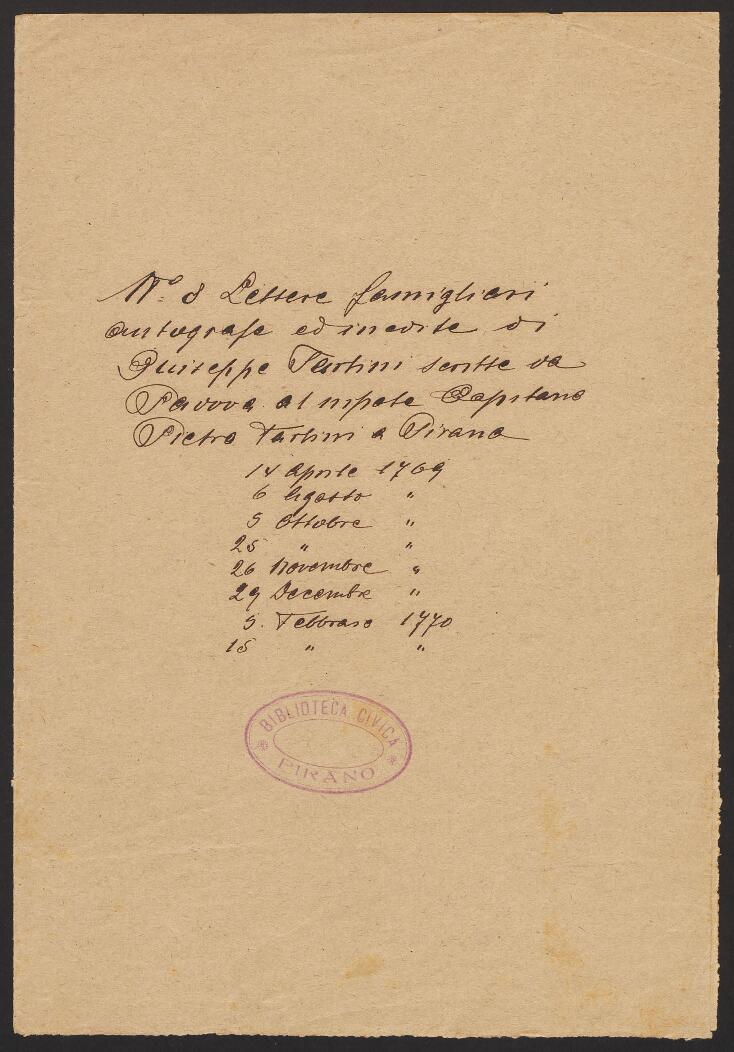 N.º 8 Lettere famigliari
autografe ed inedite di
Giuseppe Tartini scritte da
Padova al nipote Capitano
Pietro Tartini a Pirano
14 Aprile 1769
6 Agosto "
5 Ottobre "
25 " "
26 Novembre "
29 Decembre "
5. Febbraio 1770
15 " "
BIBLIOTECA CIVICA
PIRANO